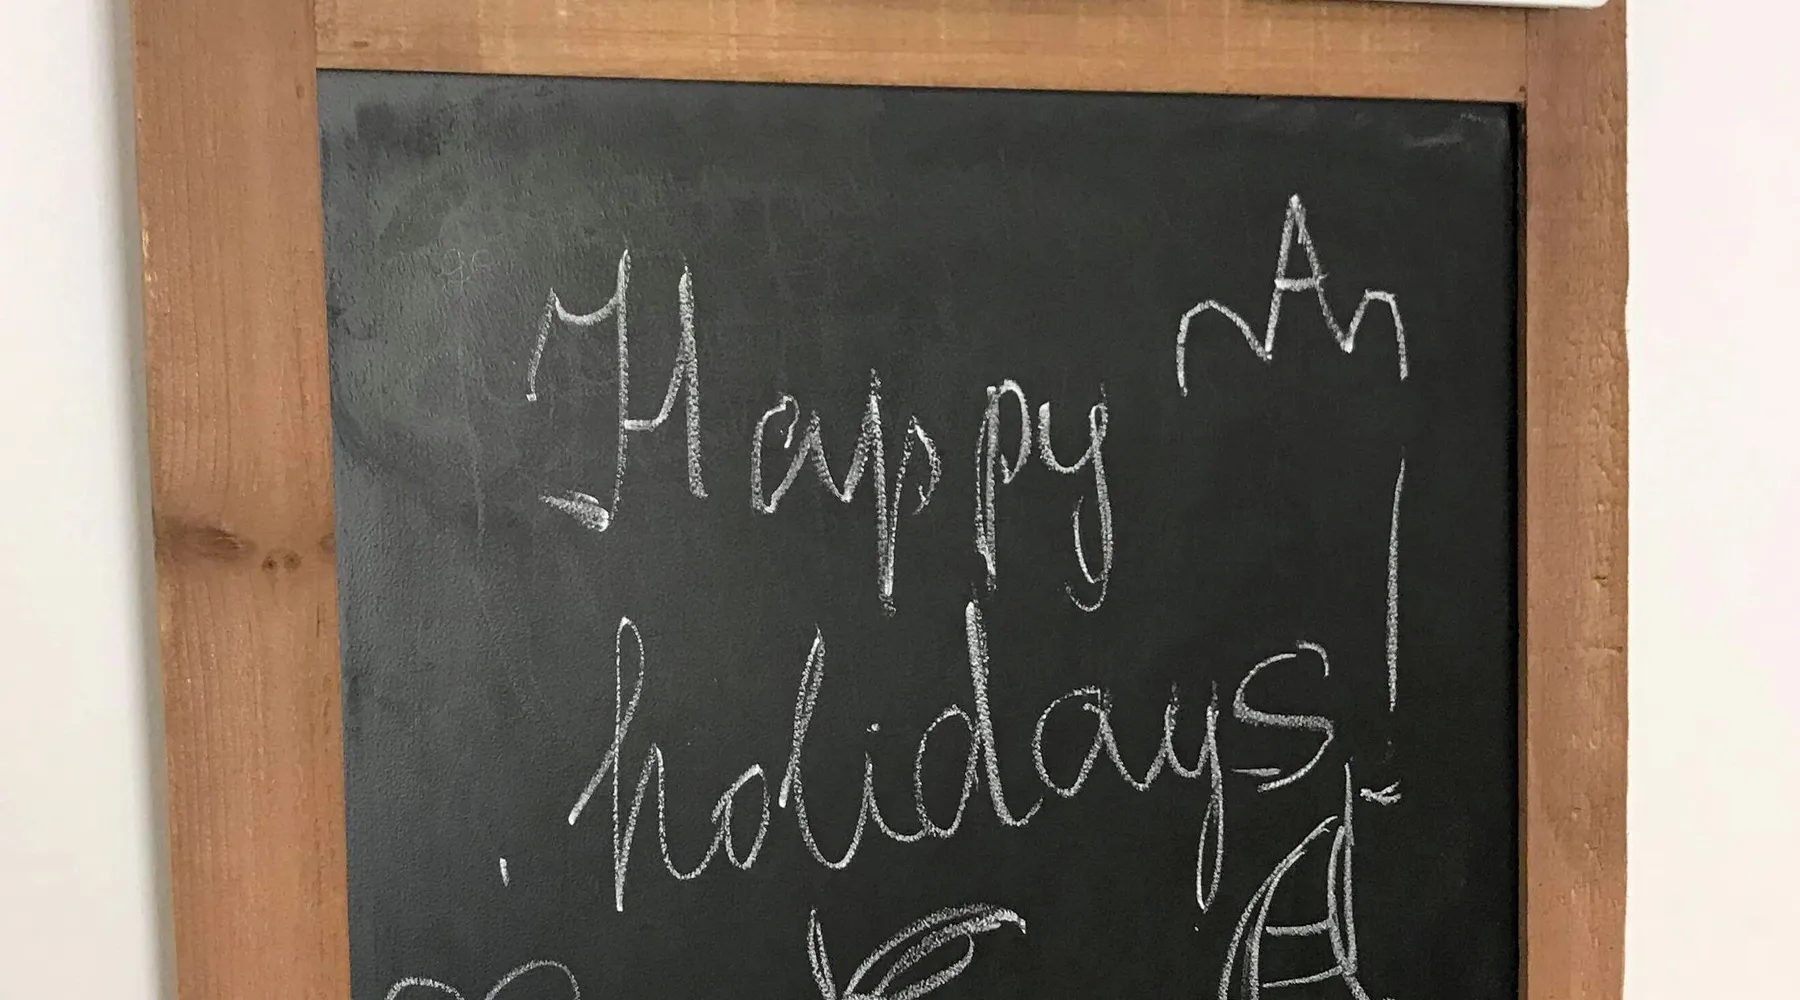 Happy
holidays!